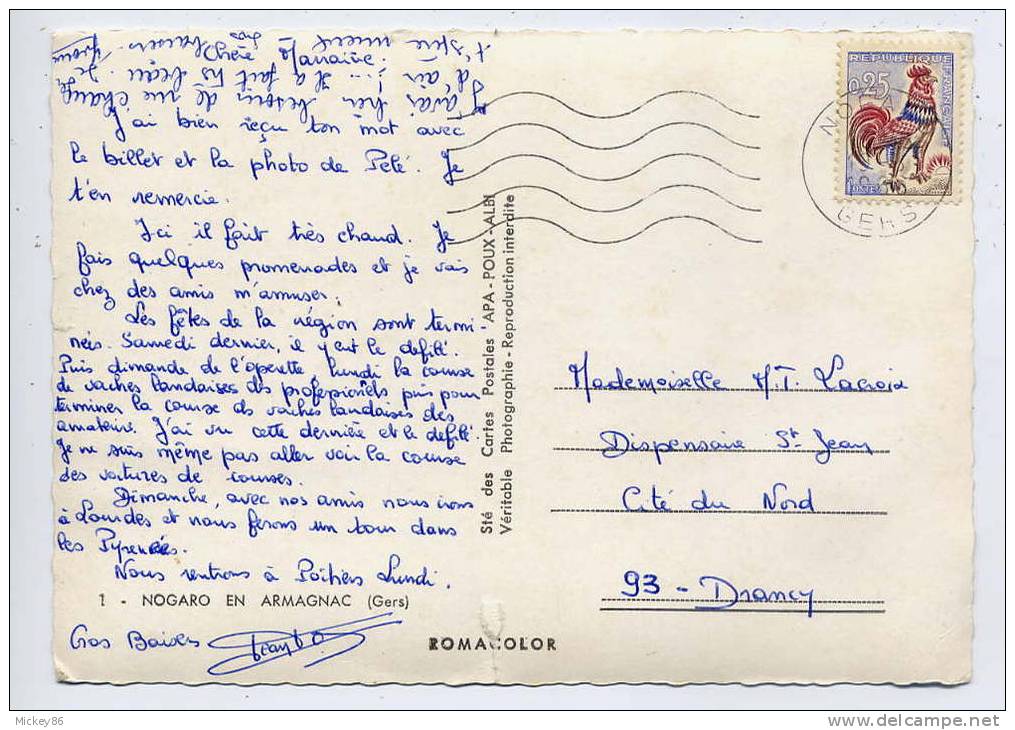 Chère Marraine.
J'ai bien reçu ton mot avec
le billet et la photo de Pelé. Je
t'en remercie.
Ici il fait très chaud. Je
fais quelques promenades et je vais
chez des amis m'amuser.
Les fêtes de la région sont termi-
nées. Samedi dernier, il y eut le défilé.
Puis dimande de l'operette Lundi la course
de vaches landaises des professionels puis pour
terminer la course ds vaches landaises des
amateurs. J'ai vu cette dernière et le défilé
Je ne suis même pas aller voir la course
des voitures de courses.
Dimanche, avec nos amis nous irons
à Lourdes et nous ferons un tour dans
les Pyrenées.
Nous rentrons à Poitiers Lundi.
1 - NOGARO EN ARMAGNAC (Gers)
Gros Baisers
J'avais bien besoin de me changer
d'air !... Il a fait très beau. Je
t'espère
baisers
Sté des Cartes Postales APA-POUX-ALBI
Véritable Photographie - Reproduction interdite
ROMACOLOR
REPUBLIQUE FRANÇAISE
0,25
POSTES
GERS
Mademoiselle M.T. Lacroix
Dispensaire St Jean
Cité du Nord
93 - Drancy
Mickey86
www.delcampe.net